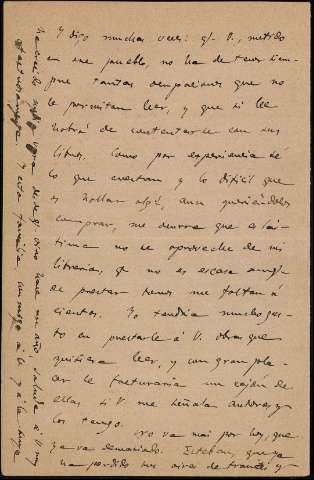 Y digo muchas veces: q. V., metido
en ese pueblo, no ha de tener siem-
pre tantas ocupaciones que no
le permitan leer, y que si lee
habrá de contentarse con sus
libros. Como por experiencia sé
lo que cuestan y lo difícil que
es hallar algo, aun queriéndolo
comprar, me ocurre que es lás-
tima no se aproveche de mi
librería, q. no es escasa aunq.
de prestar tomos me faltan á
cientos. Yo tendría mucho gus-
to en prestarle á V. obras que
quisiera leer, y con gran pla-
cer le facturaría un cajón de
ellas si V. me señala autores y
los tengo.
no va más por hoy, que
ya va demasiado. Esteban, que ya
ha perdido sus aires de francés y
ha crecido
de q. vino hace un año saluda á V. muy
y esta familia, conmigo á V. y á la suya